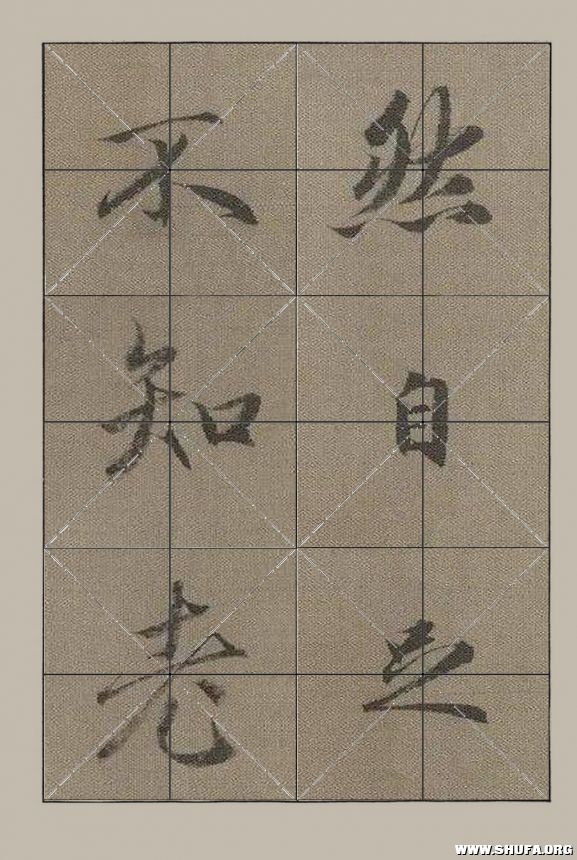 然自足
不知老
WWW.SHUFA.ORG